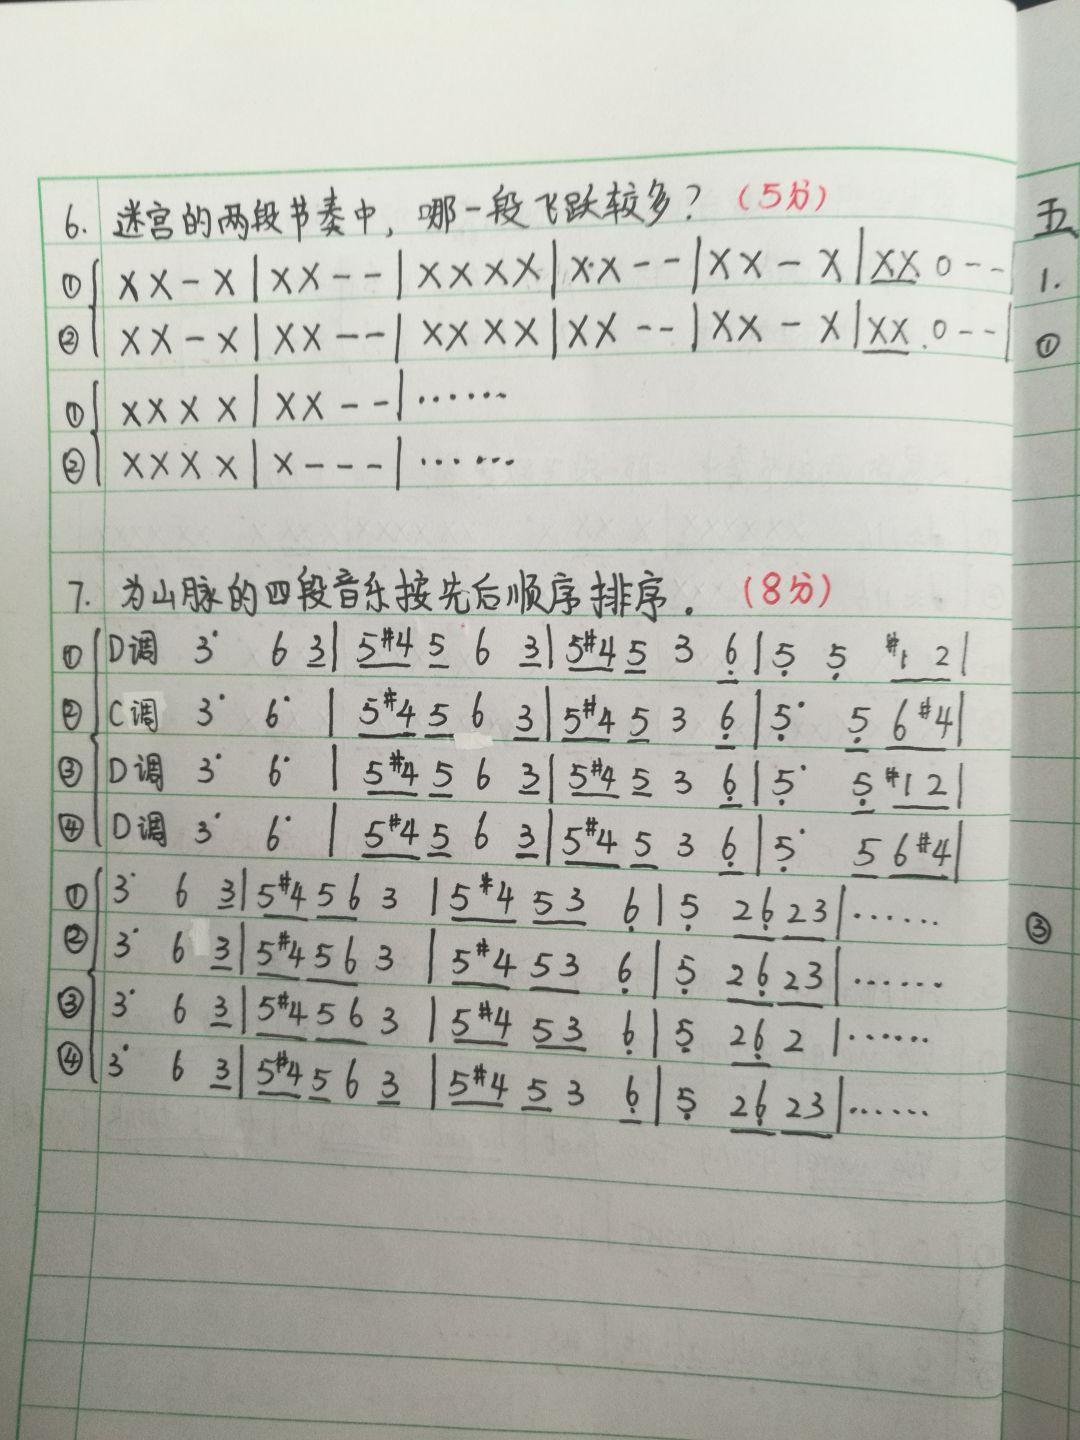 6. 迷宫的两段节奏中，哪一段飞跃较多？（5分）
① X X - X | X X - - | X X X X | X X - - | X X - X | X X 0 - -
② X X - X | X X - - | X X X X | X X - - | X X - X | X X 0 - - |
① X X X X | X X - - | ······
② X X X X | X - - - | ······
7. 为山脉的四段音乐按先后顺序排序。（8分）
① D调 3· 6 3 | 5 #4 5 6 3 | 5 #4 5 3 6 | 5 5 #1 2 |
② C调 3· 6· | 5 #4 5 6 3 | 5 #4 5 3 6 | 5· 5 6 #4 |
③ D调 3· 6· | 5 #4 5 6 3 | 5 #4 5 3 6 | 5· 5 #1 2 |
④ D调 3· 6· | 5 #4 5 6 3 | 5 #4 5 3 6 | 5· 5 6 #4 |
① 3· 6 3 | 5 #4 5 6 3 | 5 #4 5 3 6 | 5 2 6 2 3 | ······
② 3· 6 3 | 5 #4 5 6 3 | 5 #4 5 3 6 | 5 2 6 2 3 | ······
③ 3· 6 3 | 5 #4 5 6 3 | 5 #4 5 3 6 | 5 2 6 2 | ······
④ 3· 6 3 | 5 #4 5 6 3 | 5 #4 5 3 6 | 5 2 6 2 3 | ······
五
1.
①
③